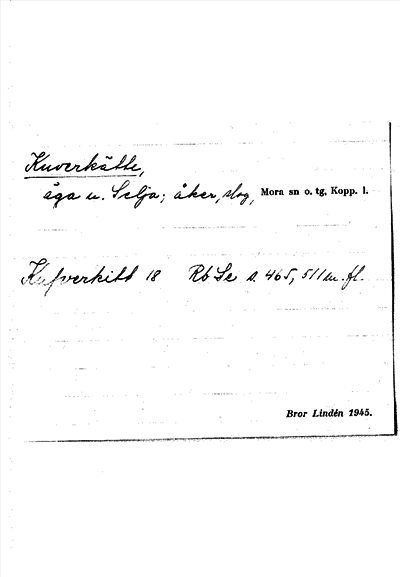 Kuverkätte,
äga u. Selja; åker, slog, Mora sn o. tg, Kopp. l.
Kufverkitt 18 Rb Se s. 465, 511 m. fl.
Bror Lindén 1945.